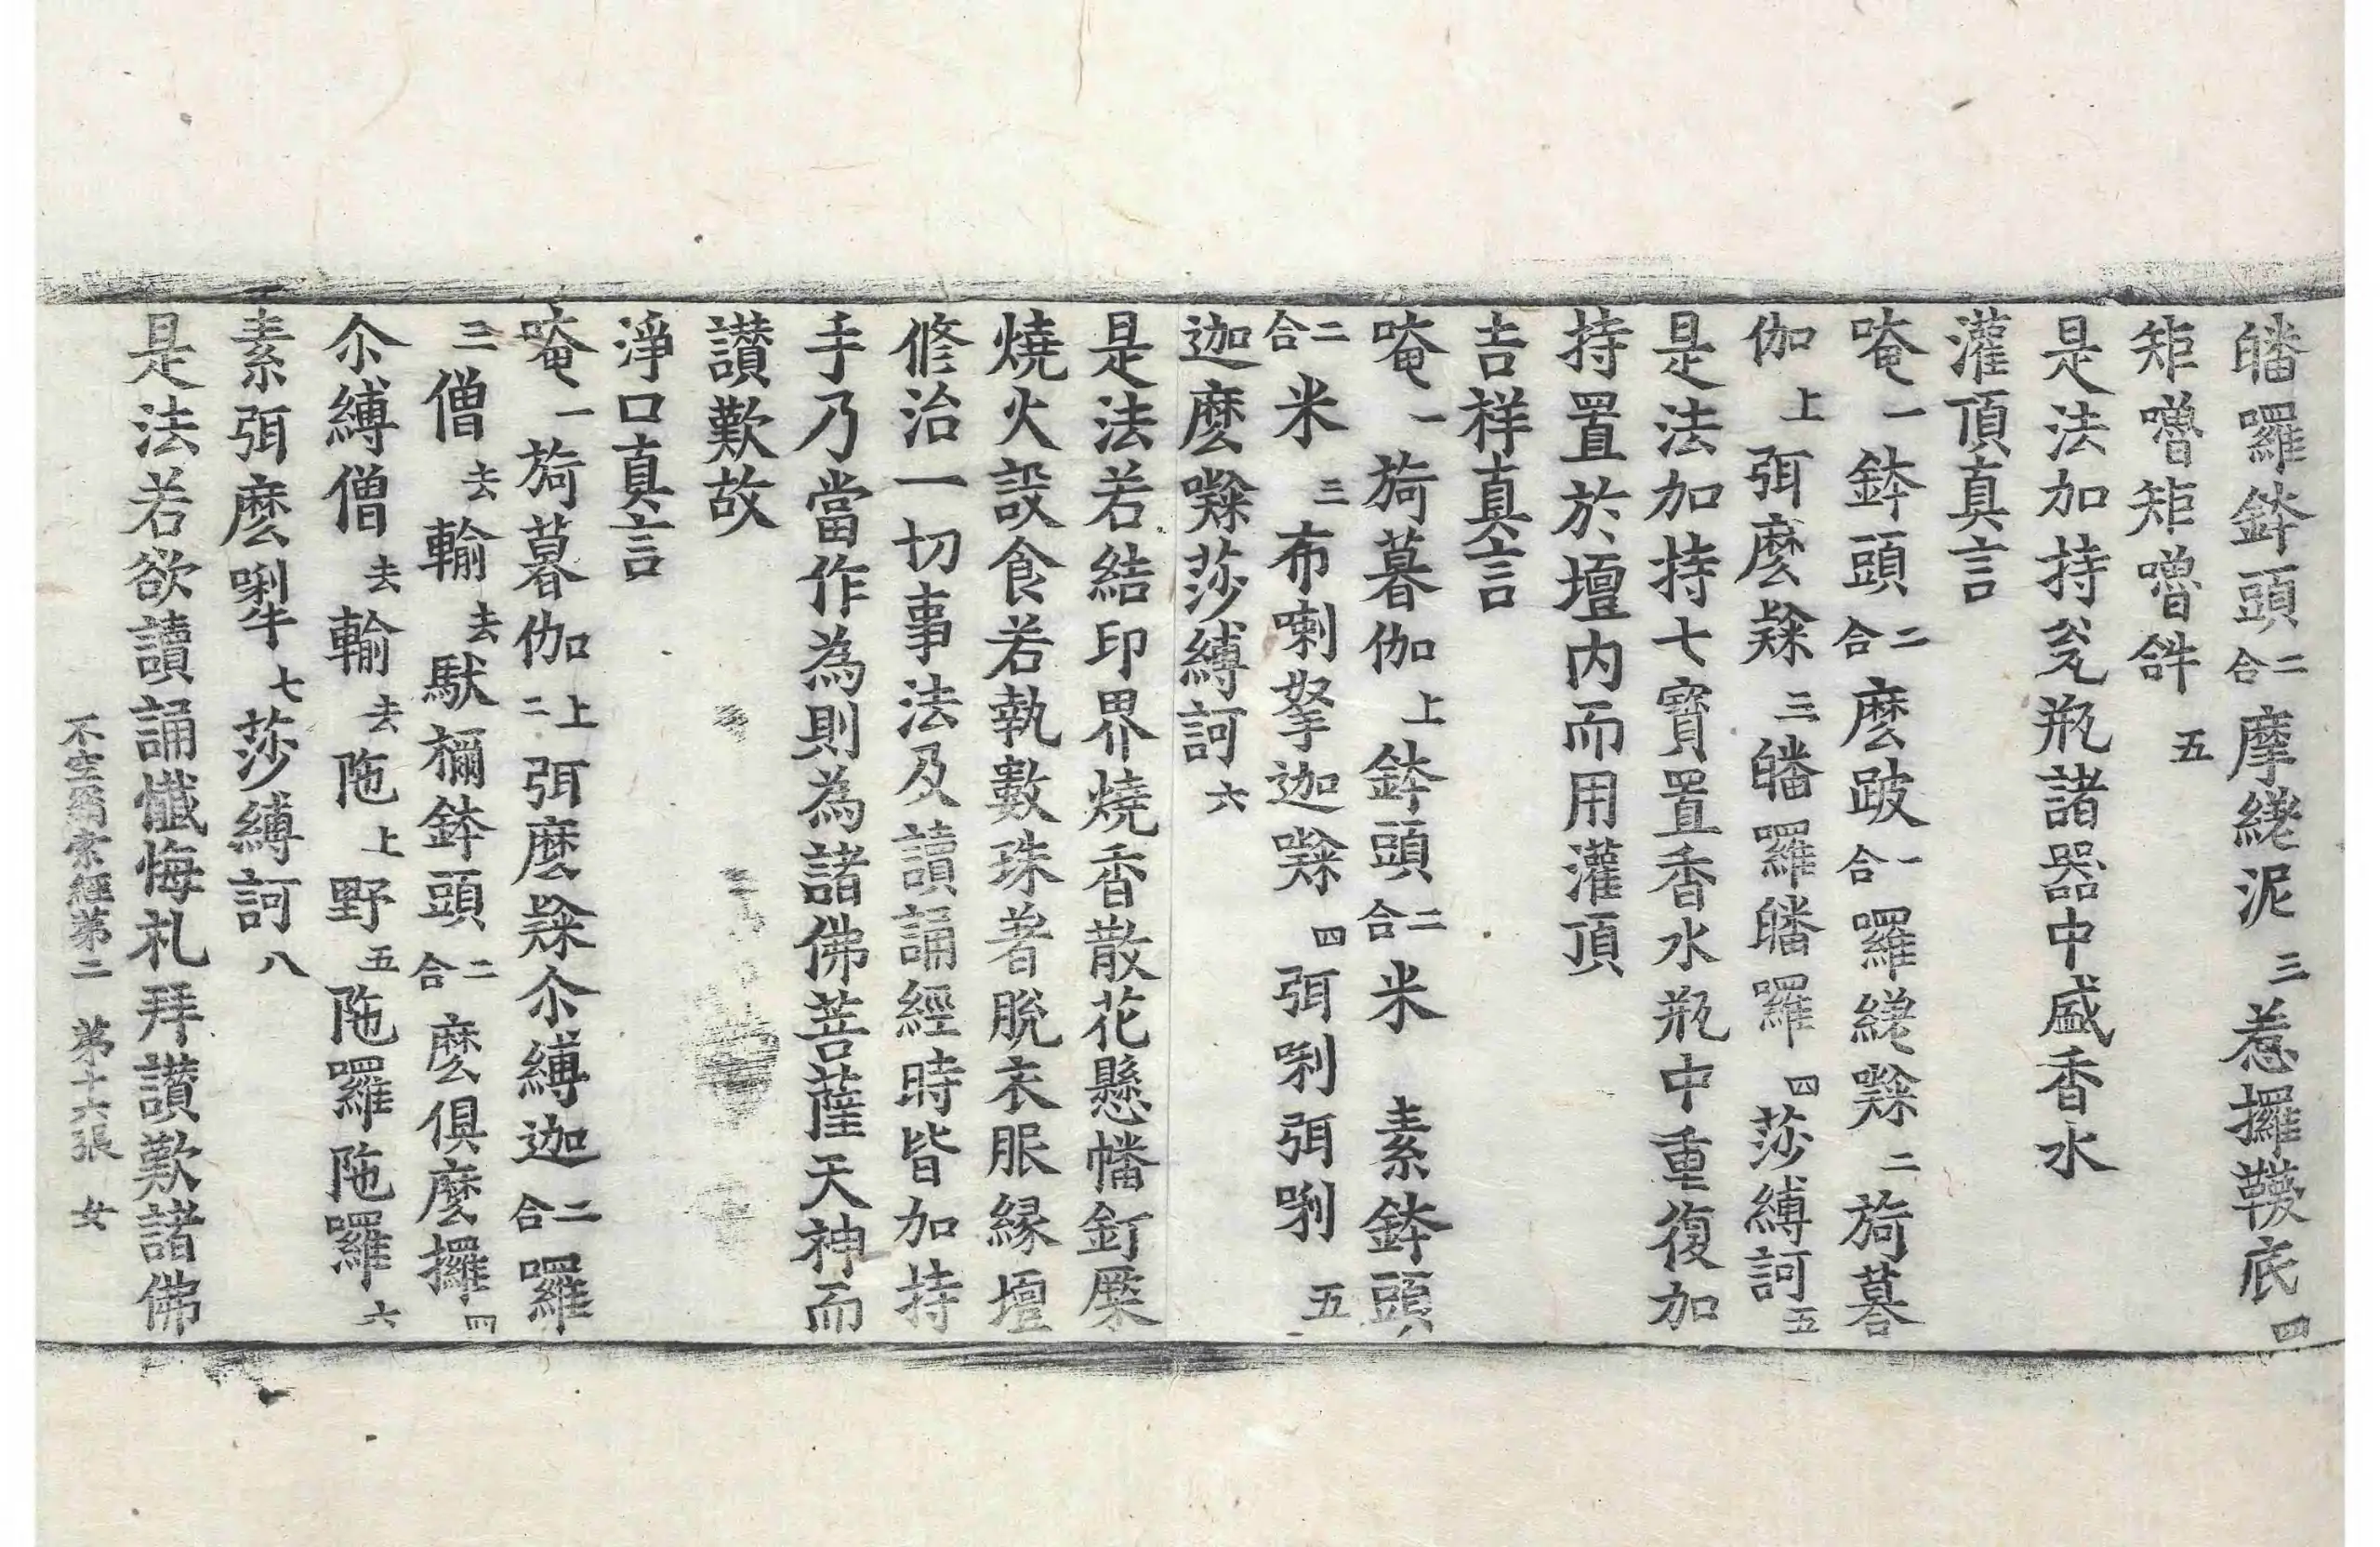 皤囉鉢頭二合摩㨄泥三惹攞鞿底四
矩嚕矩嚕𤙖五
是法加持瓮瓶諸器中盛香水
灌頂真言
唵一鉢頭二合麼跛一合囉㨄㘑二旖暮
伽上弭麼㘑三皤囉皤囉四莎縛訶五
是法加持七寶置香水瓶中重復加
持置於壇内而用灌頂
吉祥真言
唵一旖暮伽上鉢頭二合米素鉢頭
二合米三布喇拏迦㘑四弭唎弭唎五
迦麼㘑莎縛訶六
是法若結印界燒香散花懸幡釘橛
燒火設食若執數珠著脫衣服縁壇
修治一切事法及讀誦經時皆加持
手乃當作為則為諸佛菩薩天神而
讃歎故
淨口真言
唵一旖暮伽上二弭麼㘑尒縛迦二合囉
三僧去輸去馱禰鉢頭二合麼俱麼攞四
尒縛僧去輸去陁上野五陁囉陁囉六
素弭麼唎𤙖七莎縛訶八
是法若欲讀誦懺悔礼拜讃歎諸佛
不空罥索經第二 第十六張 女